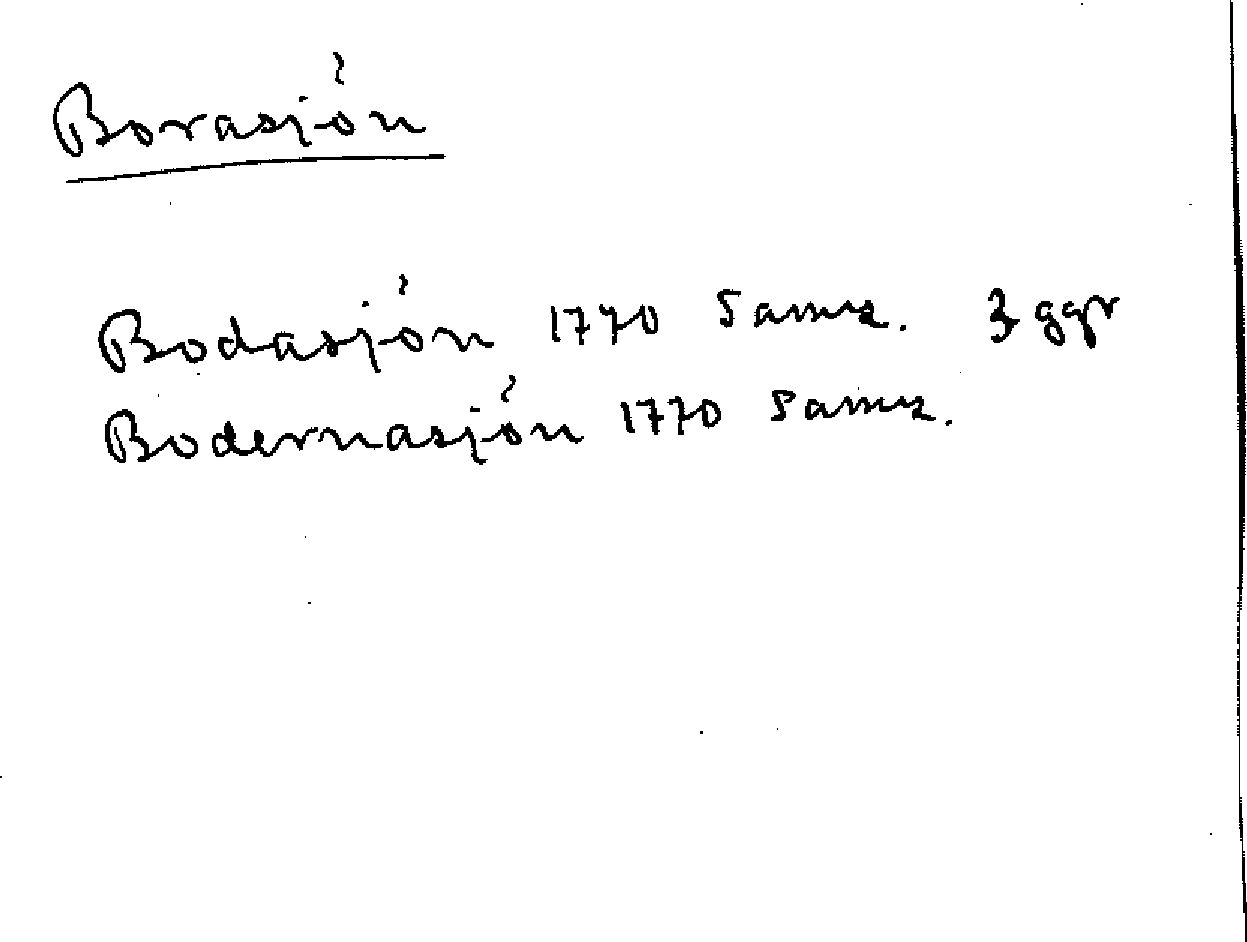 Borasjön
Bodasjön 1770 Samz. 3 ggr
Bodernasjön 1770 Samz.